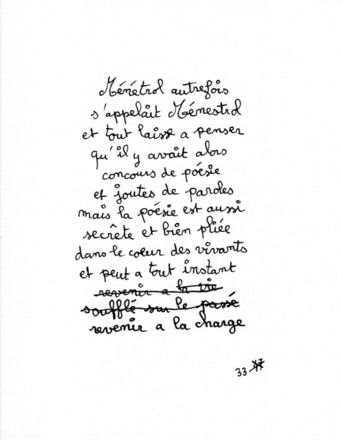 Ménétrol autrefois
s'appelait Ménestrol
et tout laisse a penser
qu'il y avait alors
concours de poésie
et joutes de paroles
mais la poésie est aussi
secrête et bien pliée
dans le coeur des vivants
et peut a tout instant
revenir a la vie
soufflé sur le passé
revenir a la charge
33